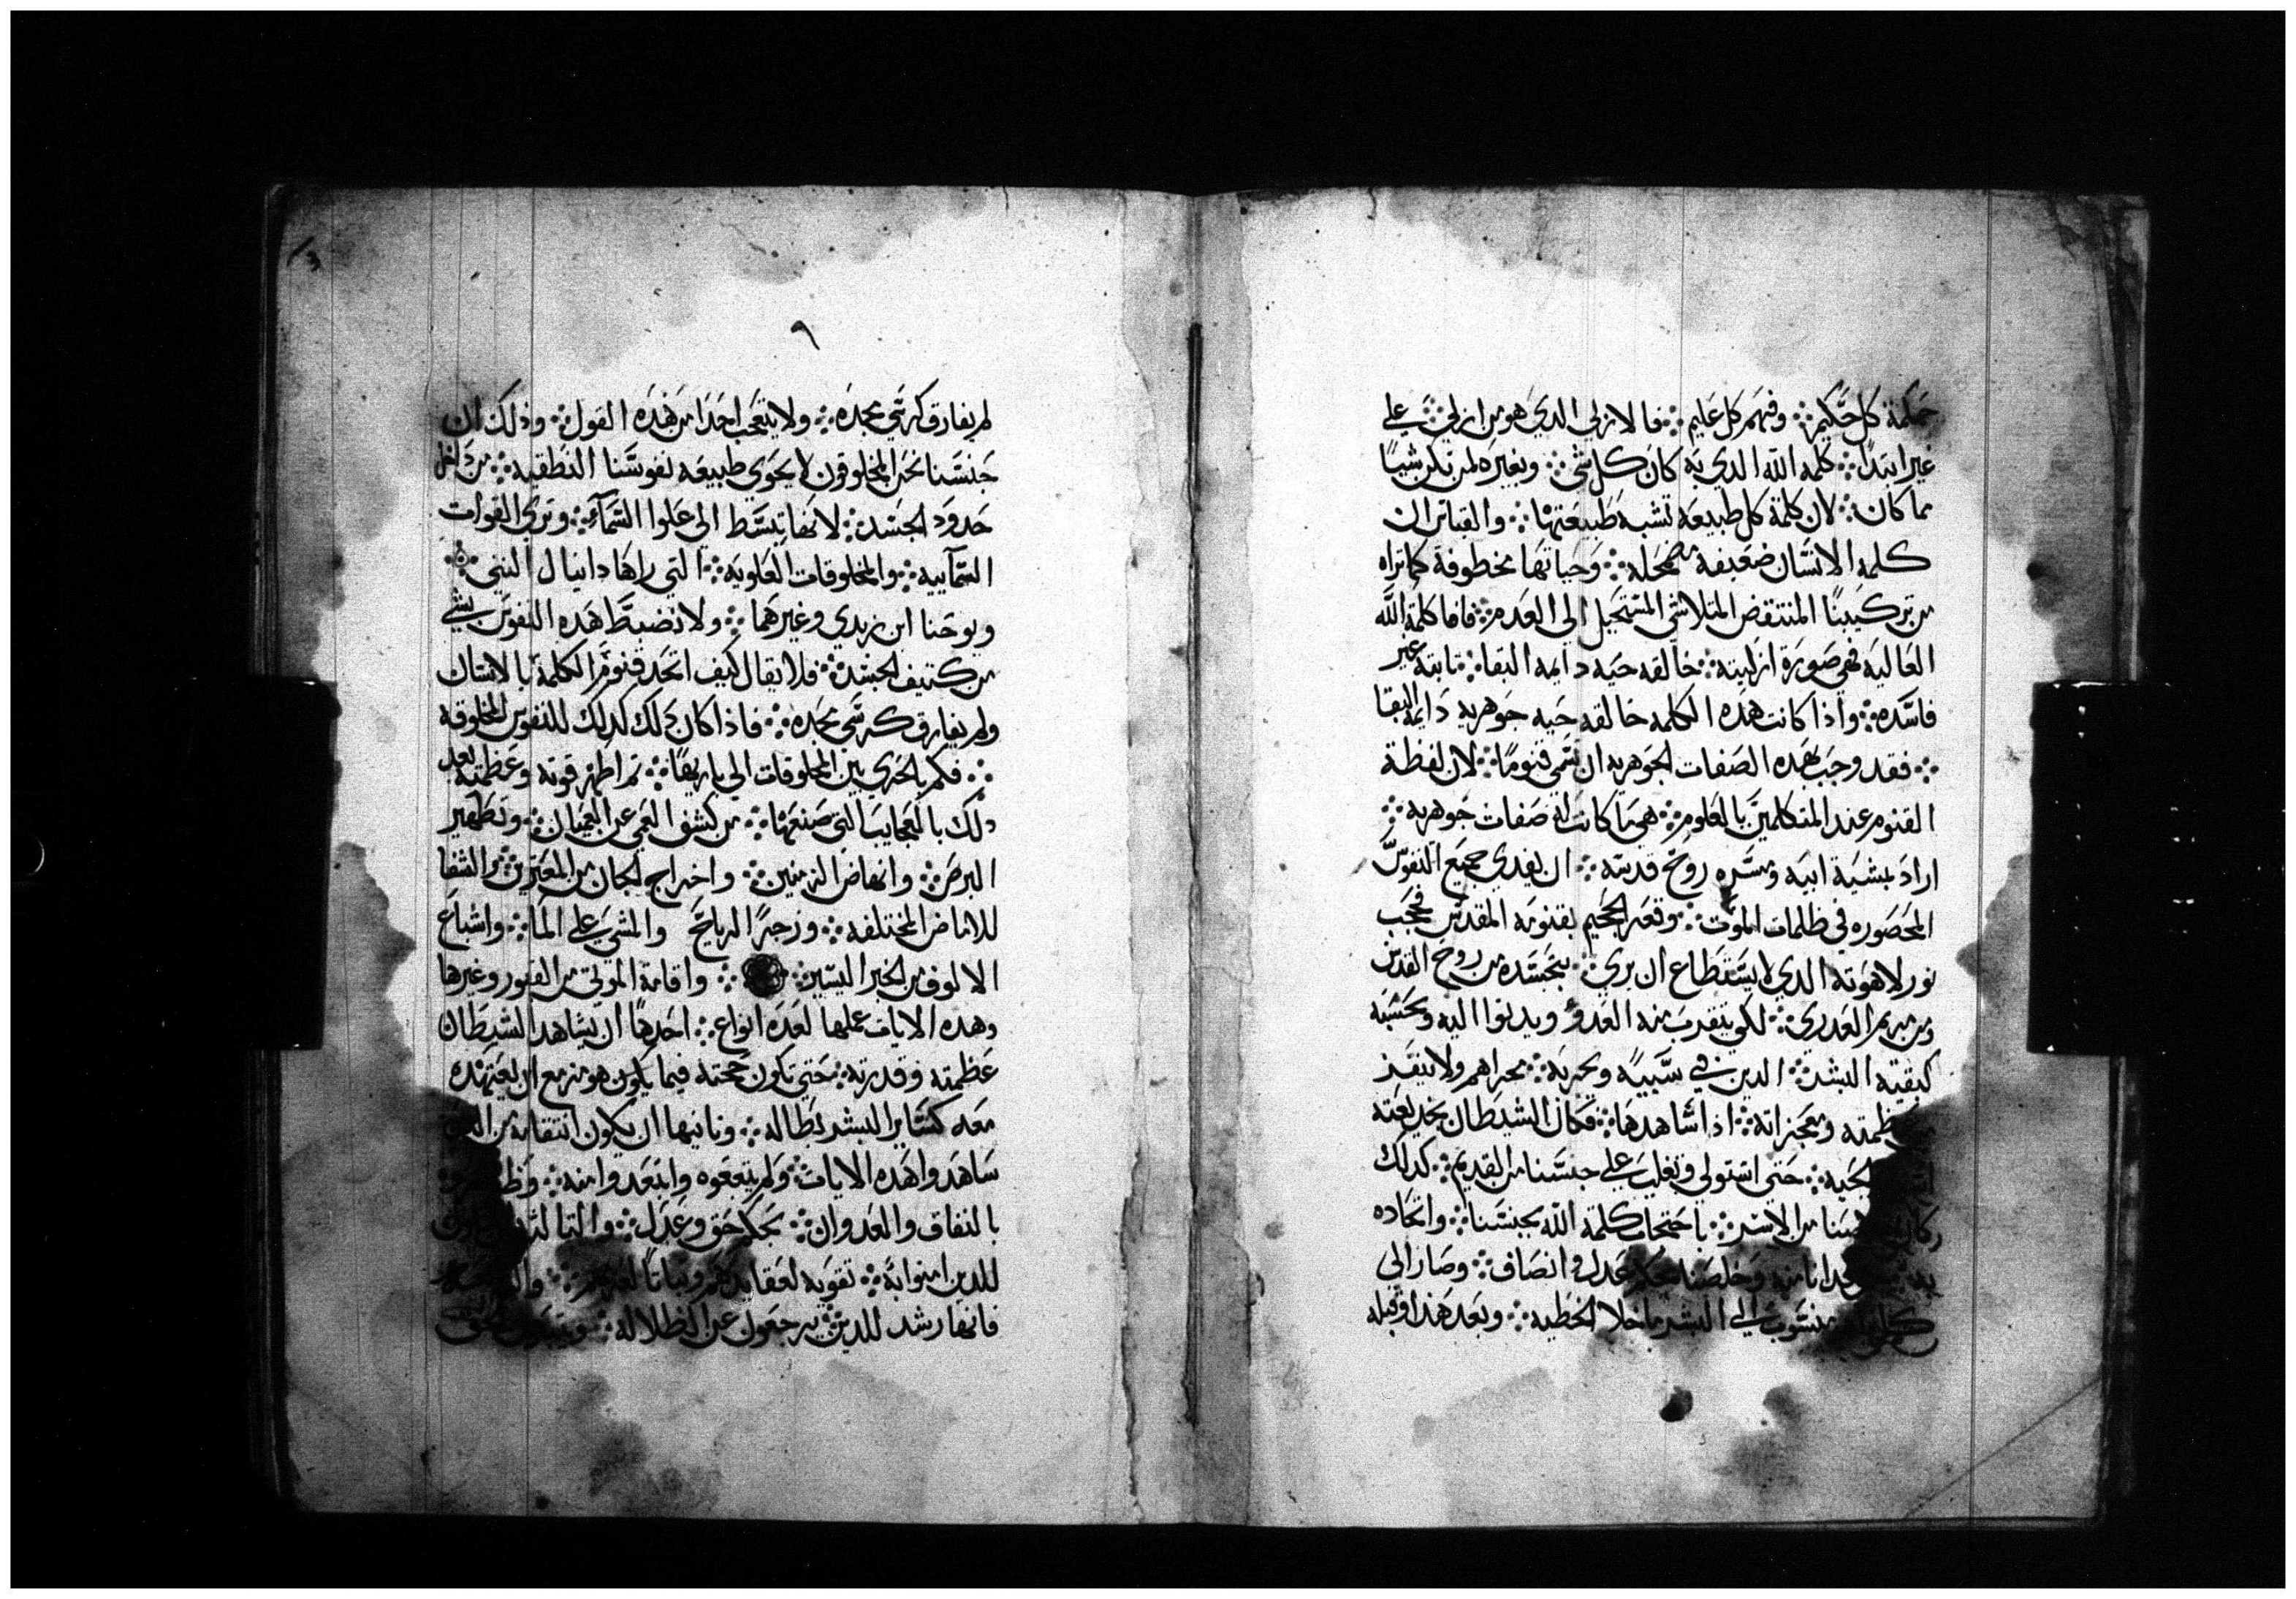 حكمة كل حكيم ⁘ وفهم كل عليم ⁘ فالازلي الدي هو من ازلي ⁘ علي
غير ابتدا ⁘ كلمه الله الدي به كان كل شي ⁘ وبغيره لم تكن شيا
مما كان ⁘ لان كلمة كل طبيعه تشبه طبيعتها ⁘ والقياس ان
كلمه الانسان ضعيفه مضمحله ⁘ وحياتها مخطوفة كما تراه
من تركيبنا المنتقض المتلاشي المستحيل الي العدم ⁘ فاما كلمة الله
العاليه فهي صورة ازليته ⁘ خالقه حيه دايمه البقا ⁘ ثابته غير
فاسده ⁘ واذا كانت هده الكلمه خالقه حيه جوهريه دايمة البقا
⁘ فقد وجب بهده الصفات الجوهريه ان تسمي قنوما ⁘ لان لفظة
القنوم عند المتكلمين بالعلوم ⁘ هي ما كانت له صفات جوهريه ⁘
اراد بمشية ابيه ومسره روح قدسه ⁘ ان يفدي جميع النفوس
المحصوره في ظلمات الموت ⁘ وقعر الجحيم بقنومه المقدس فحجب
نور لاهوته الدي لا يستطاع ان يري ⁘ بجسده من روح القدس
ومن مريم العدري ⁘ لكي يتقدم منه العدو ويدنوا اليه ويحسبه
كبقية البشر ⁘ الدين في سبيه وبحريه ⁘ مجراهم ولا
عظمته ومعجزاته ⁘ ادا شاهدها ⁘ فكان الشيطان بخديعته
الحيه ⁘ حتي استولي وتغلب علي جنسنا من القديم ⁘ كدلك
كان من الاسر ⁘ باحتجاب كلمة الله بجنسنا ⁘ واتحاده
وخلصنا بحكم عدل وانصاف ⁘ وصار الي
منسوب الي البشر ما خلا الخطيه ⁘ وبعد هدا وقبله
٩
لم يفارق كرسي مجده ⁘ ولا يتعجب احدا من هده القول ⁘ ودلك ان
جنسنا نحن المخلوقون لا يحوي طبيعه نفوسنا النطقيه ⁘ من داخل
حدود الجسد ⁘ لانها تبسط الي علوا السمآء ⁘ وتري القوات
السمآييه ⁘ والمخلوقات العلويه ⁘ التي راها دانيال النبي ⁘
ويوحنا ابن زبدي وغيرهما ⁘ ولا تضبط هده النفوس بشي
من كتيف الجسد ⁘ فلا يقال كيف اتحد قنوم الكلمة بالانسان
ولم يفارق كرسي مجده ⁘ فاذا كان دلك كدلك للنفوس المخلوقه
⁘ فكم بالحري بين المخلوقات الي باريها ⁘ تم اظهر قوته وعظمته بعد
دلك بالعجايب التي صنعها ⁘ من كشف العمي عن العميان ⁘ وتطهير
البرص ⁘ وانهاض الزمنين ⁘ واخراج الجان من المعترين ⁘ والشفا
للامراض المختلفه ⁘ وزجر الرياح والمشي علي الما ⁘ واشباع
الالوف من الخبز اليسير ⁘ واقامة الموتي من القبور وغيرها
وهده الايات عملها لعدة انواع ⁘ احدها ان يشاهد الشيطان
عظمته وقدرته ⁘ حتي تكون حجته فيما يكون هو مزمع ان يعتمده
معه كساير البشر بطاله ⁘ وتانيها ان يكون انتقامه من
شاهدوا هده الايات ⁘ ولم يتبعوه وابتعدوا منه ⁘
بالنفاق والعدوان ⁘ بحكم حق وعدل ⁘ والتالت
للدين امنوا به ⁘ تقويه لعقايدهم وتباتا ⁘
فانها رشد للدين يرجعون عن الظلاله ⁘